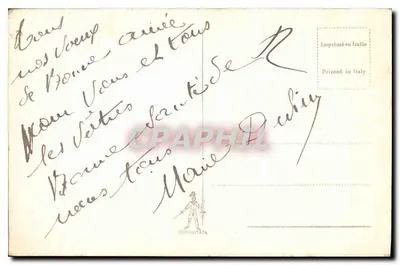 tous
nos voeux
de Bonne année
Pour Vous et tous
les Vôtres
Bonne Santé de
nous tous
Marie
Imprimé en Italie
Printed in Italy
CPAPHIL